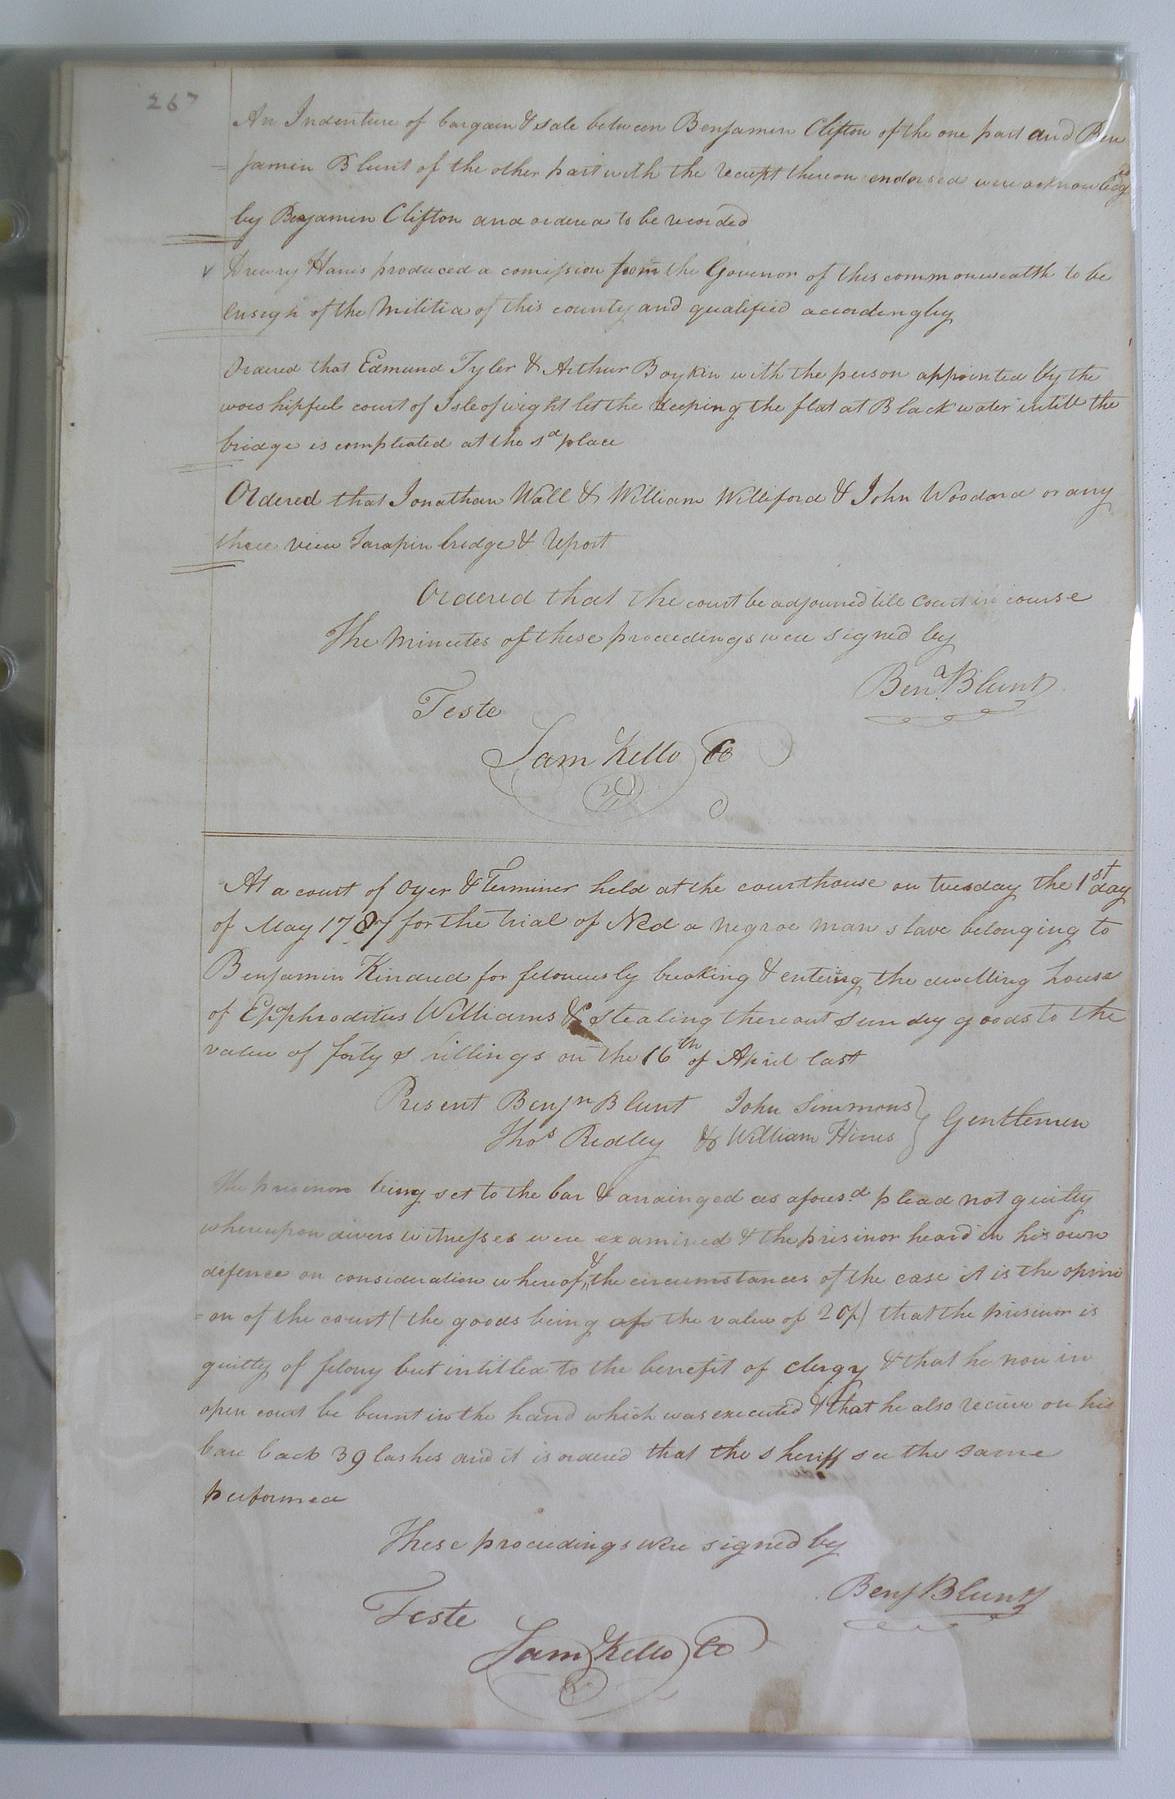 267
An Indenture of bargain & sale between Benjamin Clifton of the one part and Ben
= jamin Blunt of the other part with the receipt thereon endorsed were acknowledg.d
by Benjamin Clifton and ordered to be recorded
Drewry Harris produced a comission from the Govenor of this commonwealth to be
Ensign of the Militia of this county and qualified accordingly
Ordered that Edmund Tyler & Arthur Boykin with the person appointed by the
worshipful court of Isle of wight let the keeping the flat at Black water untill the
bridge is compleated at the sd place
Ordered that Jonathan Wall & William Williford & John Woodard or any
three view Tarapin bridge & report
Ordered that the court be adjourned till Court in course
The Minutes of these proceedings were signed by
Bena Blunt
Teste
Sam Kello CC
At a court of Oyer & Terminer held at the courthouse on tuesday the 1st day
of May 1787 for the trial of Ned a negroe man slave belonging to
Benjamin Kindred for feloneusly breaking & entering the dwelling house
of Epaphroditus Williams & stealing thereout sundry goods to the
value of forty shillings on the 16th of April last
Present Benjn Blunt John Simmons
Thos Ridley & William Hines } Gentlemen
The prisinor being set to the bar & arrainged as afores.d plead not guilty
whereupon divers witnesses were examined & the prisinor heard in his own
defence on consideration whereof & the circumstances of the case it is the opini
= on of the court ( the goods being of the value of 20/) that the prisinor is
guilty of felony but intitled to the benefit of clergy & that he now in
open court be burnt in the hand which was executed & that he also recieve on his
bare back 39 lashes and it is ordered that the sheriff see the same
performed
These proceedings were signed by
Benj Blunt
Teste
Sam Kello CC